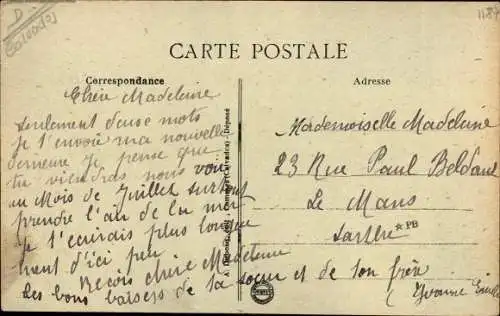 D
Calvados
1187
CARTE POSTALE
Correspondance
Adresse
Chère Madeleine
seulement deux mots
je t'envoie ma nouvelle
demeure je pense que
tu viendras nous voir
au mois de Juillet surtout
prendre l'air de la mer
je t'écrirais plus longue
ment d'ici peu
Reçois chère Madeleine
les bons baisers de ta sœur et de ton frère
Yvonne
Mademoiselle Madeleine
23 Rue Paul
Le Mans
Sarthe
*PB
Déposé